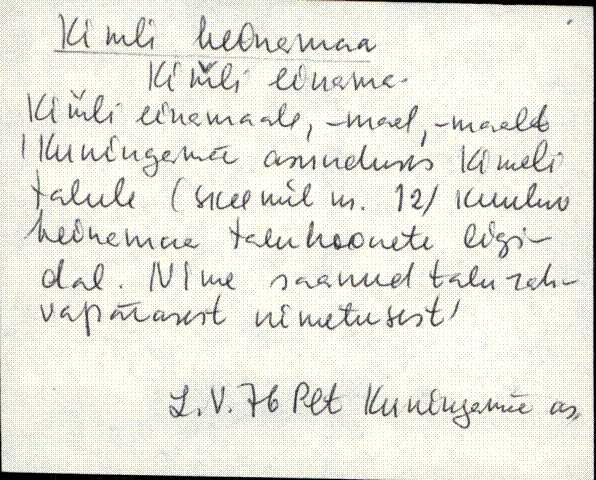 Kimli heinamaa
Kim̆li einama.
Kim̆li einamaale, -maal, -maalt
/Kuningamäe asunduses Kimeli
talule (skeemil nr. 12/ kuuluv
heinamaa taluhoonete ligi-
dal. Nime saanud talu rah-
vapärasest nimetusest/
L.V. 76 Plt Kuningamäe as.